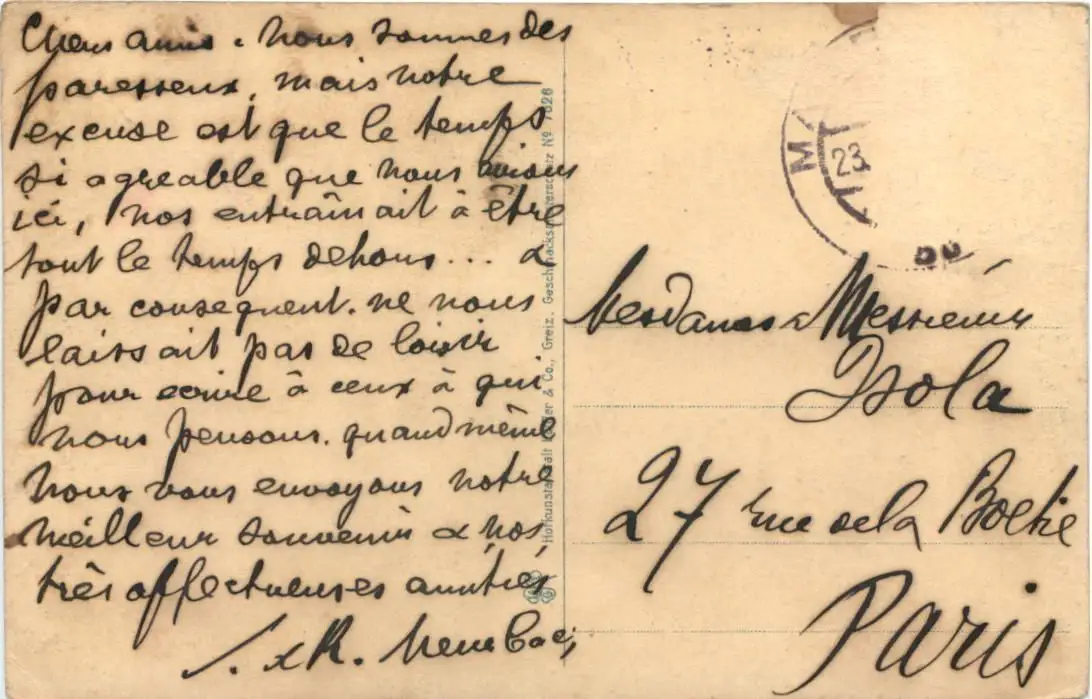 Chers amis. Nous sommes des
paresseux, mais notre
excuse est que le temps
si agreable que nous avions
ici, nos entraînait à être
tout le temps dehors... &
par consequent. ne nous
laissait pas de loisir
pour ecrire à ceux à qui
nous pensons. quand même
nous vous envoyons notre
meilleur souvenir & nos
très affectueuses amitiés
&R.
Mesdames & Messieurs
Isola
27 rue de la Boetie
Paris
Hofkunstanstalt & Co., Greiz. Nº 7626
M
23